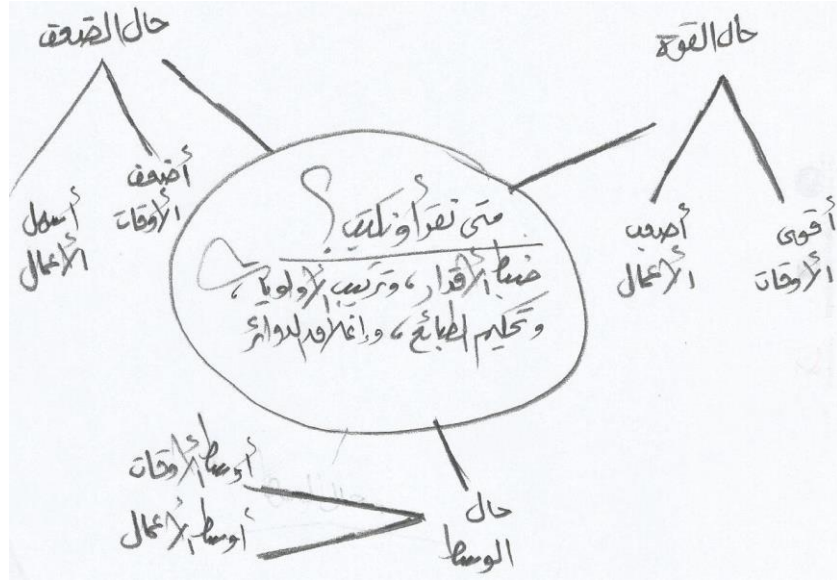 حال القوة
أقوى
الأوقات
أصعب
الأعمال
حال الضعف
أضعف
الأوقات
أسهل
الأعمال
متى نقرأ ونكتب؟
ضبط الأقدار، وترتيب الأولويات،
وتحكيم الطبائع، وإغلاق الدوائر
حال
الوسط
أوسط الأوقات
أوسط الأعمال